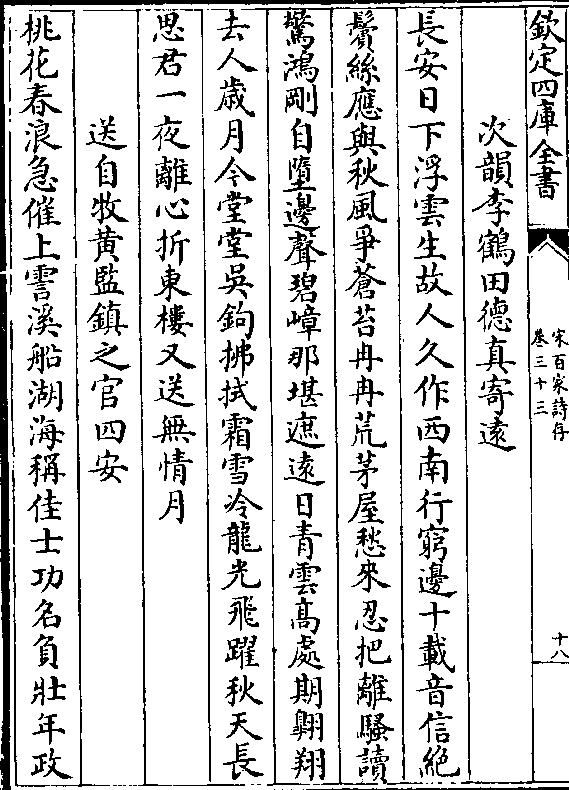 欽定四庫全書
宋百家詩存
卷三十三
十八
次韻李鶴田德真寄遠
長安日下浮雲生故人久作西南行窮邊十載音信絶
鬢絲應與秋風爭蒼苔冉冉荒茅屋愁來忍把離騷讀
驚鴻剛自墮邊聲碧嶂那堪遮遠日青雲高處期翺翔
去人歲月今堂堂吳鉤拂拭霜雪冷龍光飛躍秋天長
思君一夜離心折東樓又送無情月
送自牧黃監鎮之官四安
桃花春浪急催上霅溪船湖海稱佳士功名負壯年政